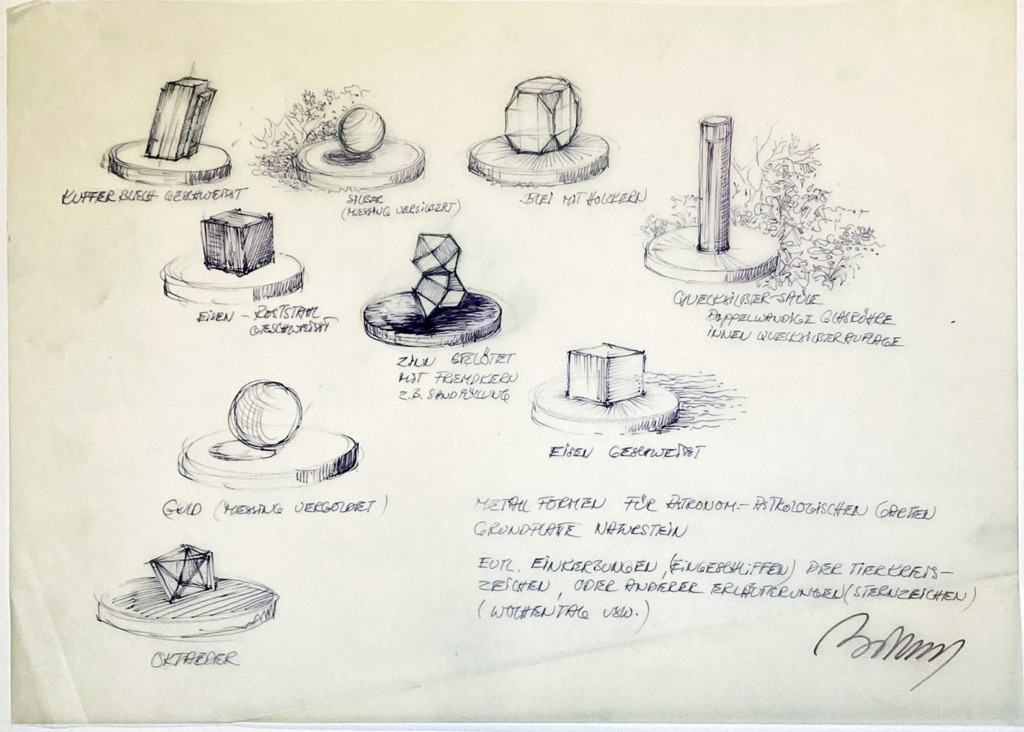 KUPFER BLECH GESCHWEISST
SILBER
(MESSING VERSILBERT)
BLEI MIT HÖLCKERN
EISEN - ROSTSTAHL
GESCHWEISST
ZINN GELÖTET
MIT FREMDKERN
Z.B. SANDFÜLLUNG
QUECKSILBER-SÄULE
DOPPELWANDIGE GLASRÖHRE
INNEN QUECKSILBERAUFLAGE
EISEN GESCHWEISST
GOLD (MESSING VERGOLDET)
OKTAEDER
METALL FORMEN FÜR ASTRONOM.- ASTROLOGISCHEN GARTEN
GRUNDPLATTE NATURSTEIN
EVTL. EINKERBUNGEN, (EINGESCHLIFFEN) DER TIERKREIS-
ZEICHEN, ODER ANDERER ERLÄUTERUNGEN (STERNZEICHEN)
(WOCHENTAG USW.)